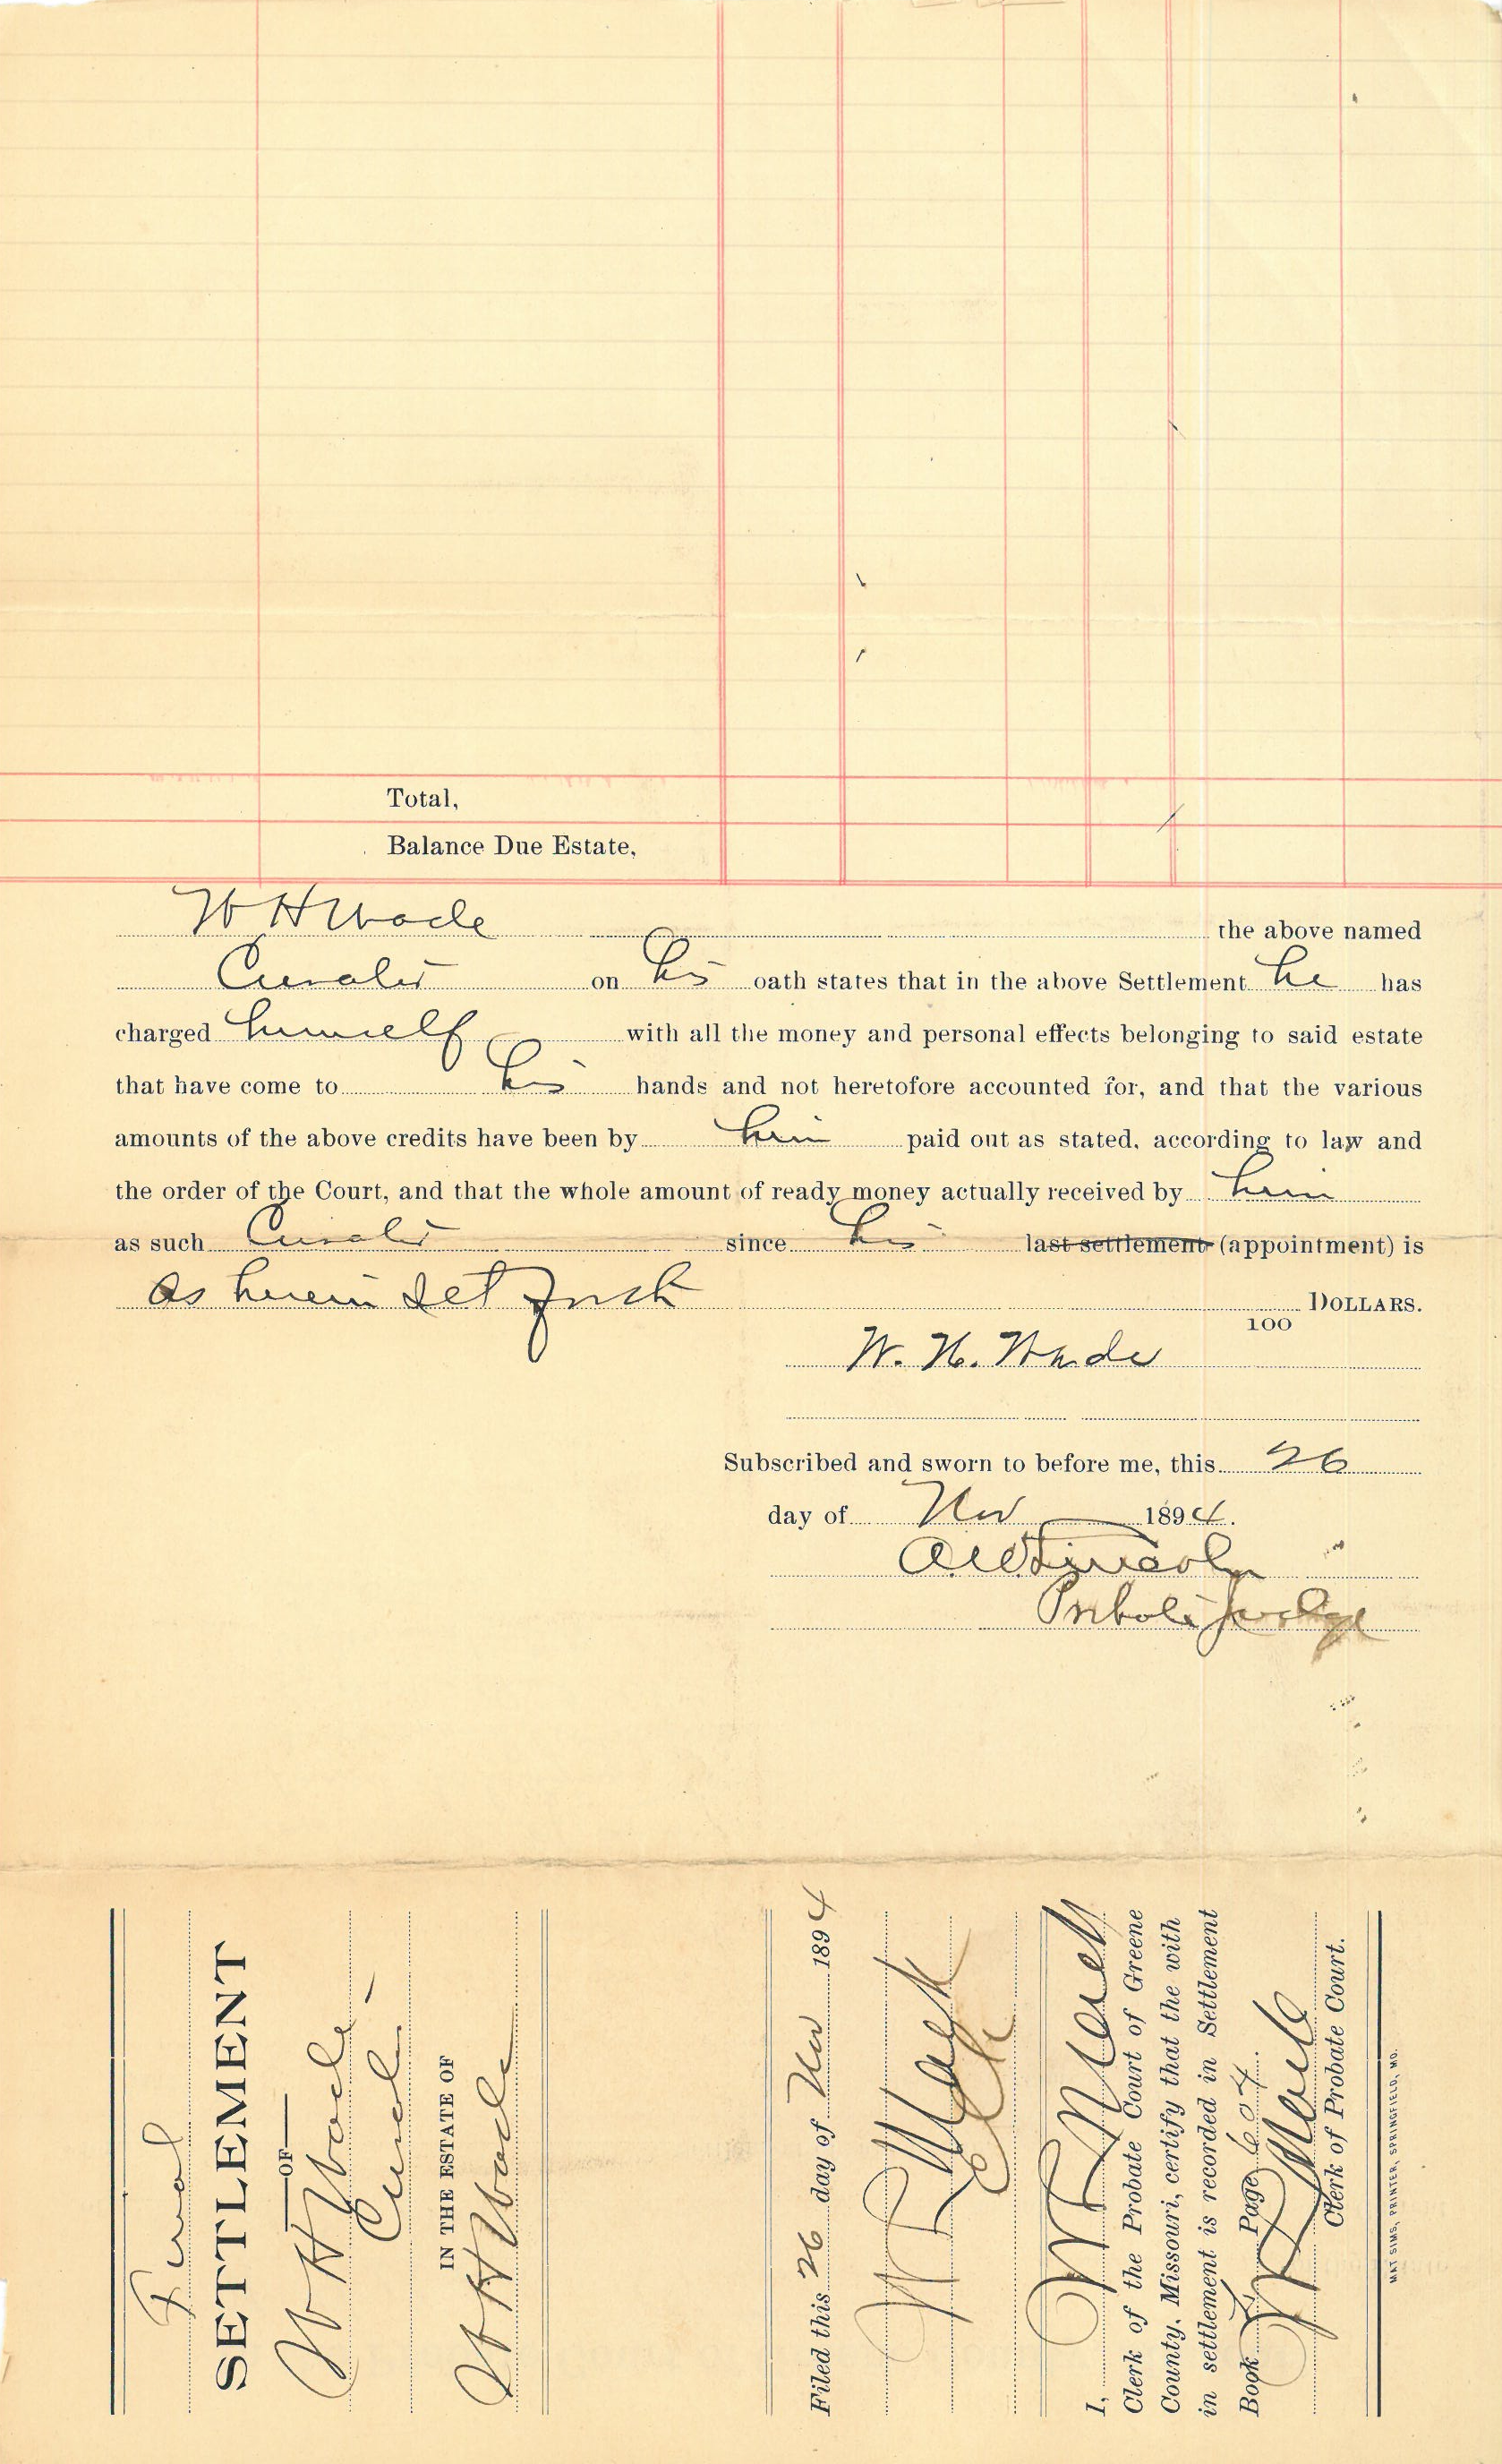 Total,
Balance Due Estate,
W H Wade the above named
Curator on his oath states that in the above Settlement he has
charged himself with all the money and personal effects belonging to said estate
that have come to his hands and not heretofore accounted for, and that the various
amounts of the above credits have been by him paid out as stated, according to law and
the order of the Court, and that the whole amount of ready money actually received by him
as such Curator since his last settlement (appointment) is
as herein set forth DOLLARS.
100
W. H. Wade
Subscribed and sworn to before me, this 26
day of Nov 1894.
A W Lincoln
Probate Judge
Final
SETTLEMENT
OF
W H Wade
Curator
IN THE ESTATE OF
W H Wade
Filed this 26 day of Nov 1894
W R
Clk
I, W R
Clerk of the Probate Court of Greene
County, Missouri, certify that the with
in settlement is recorded in Settlement
Book Page 604.
W R
Clerk of Probate Court.
MAT SIMS, PRINTER, SPRINGFIELD, MO.